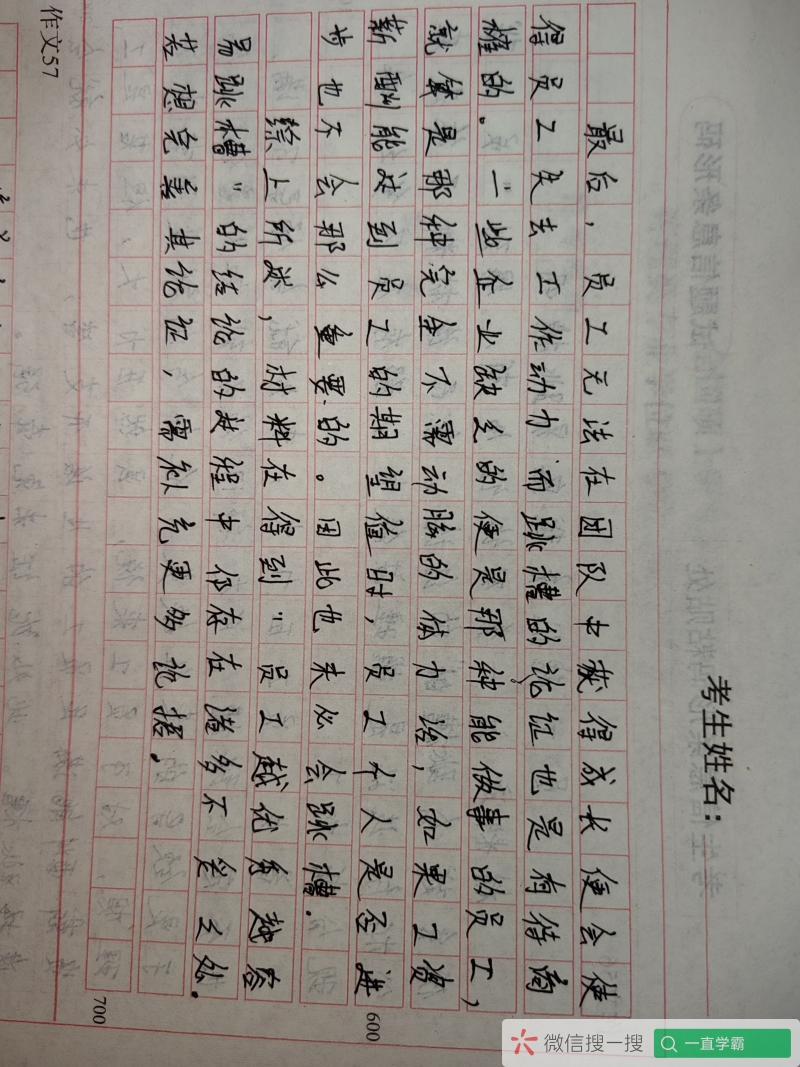 考生姓名：
最后，员工无法在团队中获得成长便会使
得员工失去工作动力而跳槽的论证也是有待商
榷的。一些企业缺乏的便是那种能做事的员工，
就算是那种完全不需动脑的体力活，如果工资
薪酬能达到员工的期望值时，员工个人是否进
步也不会那么重要的。因此也未必会跳槽。
600
综上所述，材料在得到“员工越优秀越容
易跳槽”的结论的过程中仍存在诸多不妥之处。
若想完善其论证，需补充更多论据。
700
作文57
微信搜一搜
一直学霸